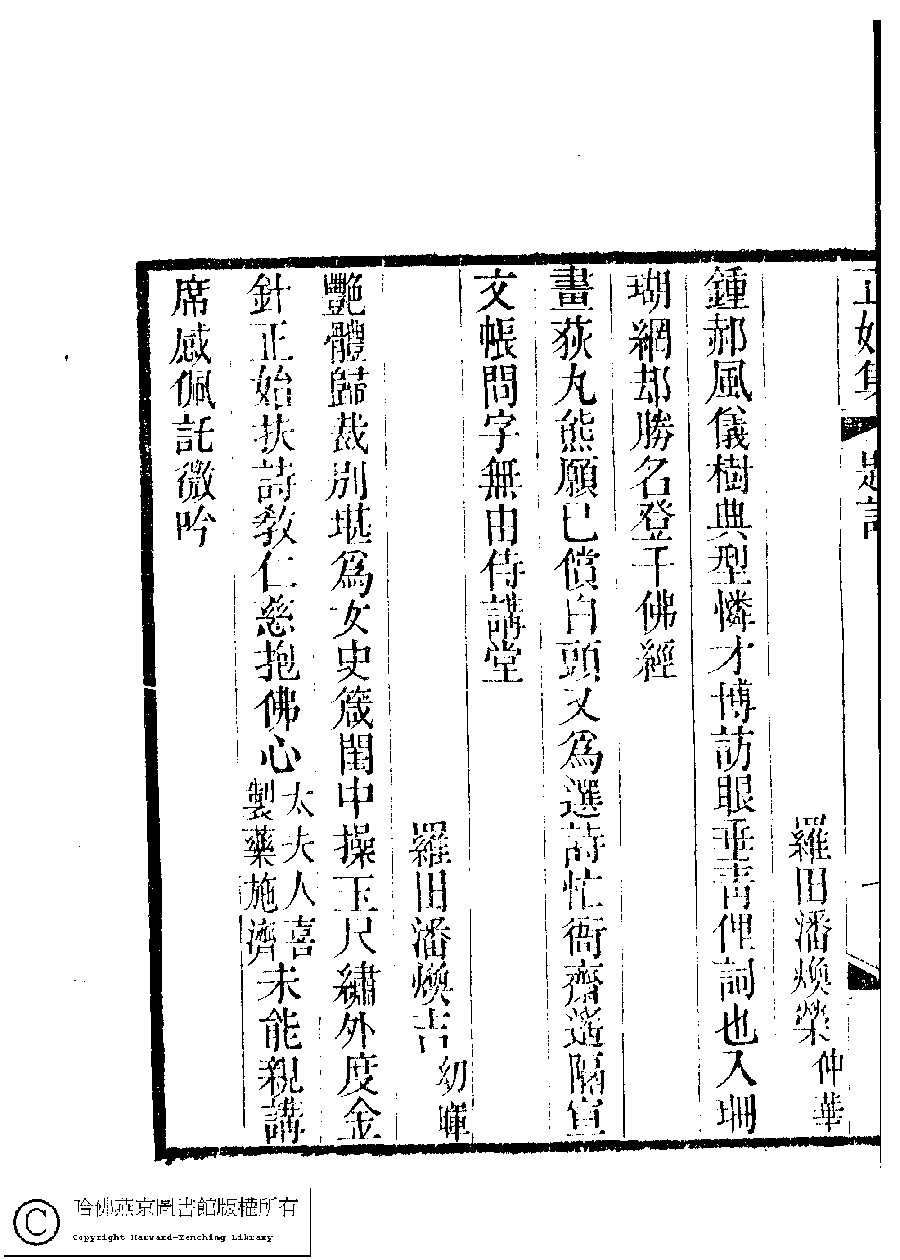 正始集 題詞 一
羅田潘煥榮仲華
鍾郝風儀樹典型憐才博訪眼垂青俚詞也入珊
瑚網却勝名登千佛經
畫荻丸熊願已償白頭又爲選詩忙衙齋遙隔宣
文帳問字無由侍講堂
羅田潘煥吉幼暉
艷體歸裁別堪爲女史箴閨中操玉尺繡外度金
針正始扶詩敎仁慈抱佛心太夫人喜製藥施濟未能親講
席感佩託微吟
哈佛燕京圖書館版權所有
Copyright Harvard-Yenching Library